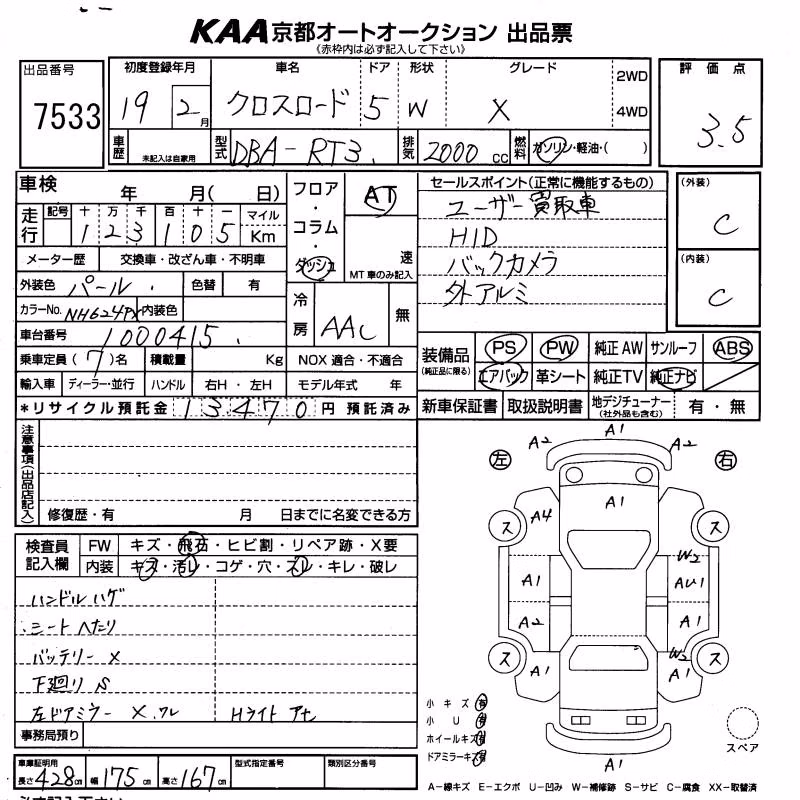 KAA 京都オートオークション 出品票
《赤枠内は必ず記入して下さい》
出品番号
7533
初度登録年月 車名 ドア 形状 グレード
19 2月 クロスロード 5 W X
2WD
4WD
車歴 未記入は自家用
型式 DBA-RT3.
排気 2000 cc
燃料 ガソリン・軽油・( )
評価点
3.5
車検 年 月( 日)
走行 記号 十 万 千 百 十 一 マイル
1 2 3 1 0 5 Km
メーター歴 交換車・改ざん車・不明車
外装色 パール. 色替 有
カラーNo. NH624PX 内装色
車台番号 1000415.
乗車定員 (7)名 積載量 Kg NOX 適合・不適合
輸入車 ディーラー・並行 ハンドル 右H・左H モデル年式 年
*リサイクル預託金 13470 円 預託済み
フロア・コラム・ダッシュ
AT
速
MT車のみ記入
冷房 AAC 無
セールスポイント(正常に機能するもの)
ユーザー買取車
HID
バックカメラ
外アルミ
(外装)
C
(内装)
C
装備品 (純正品に限る)
PS PW 純正AW サンルーフ ABS
エアバック 革シート 純正TV 純正ナビ
新車保証書 取扱説明書 地デジチューナー (社外品も含む) 有・無
注意事項(出品店記入)
修復歴・有 月 日までに名変できる方
検査員記入欄
FW キズ・飛石・ヒビ割・リペア跡・X要
内装 キズ・汚レ・コゲ・穴・スレ・キレ・破レ
ハンドルハゲ
シートへたり
バッテリー X
下廻りS
左ドアミラー X.ワレ Hライト
事務局預り
車庫証明用
長さ 428cm 幅 175cm 高さ 167cm
型式指定番号 類別区分番号
左 右
A1
A2 A2
A1
A4
ス ス
W2
A1 AU1
A2 A1
ス ス
W2
A1 A1
A1
小キズ 有
小U 有
ホイールキズ 有
ドアミラーキズ 有
スペア
A-線キズ E-エクボ U-凹み W-補修跡 S-サビ C-腐食 XX-取替済